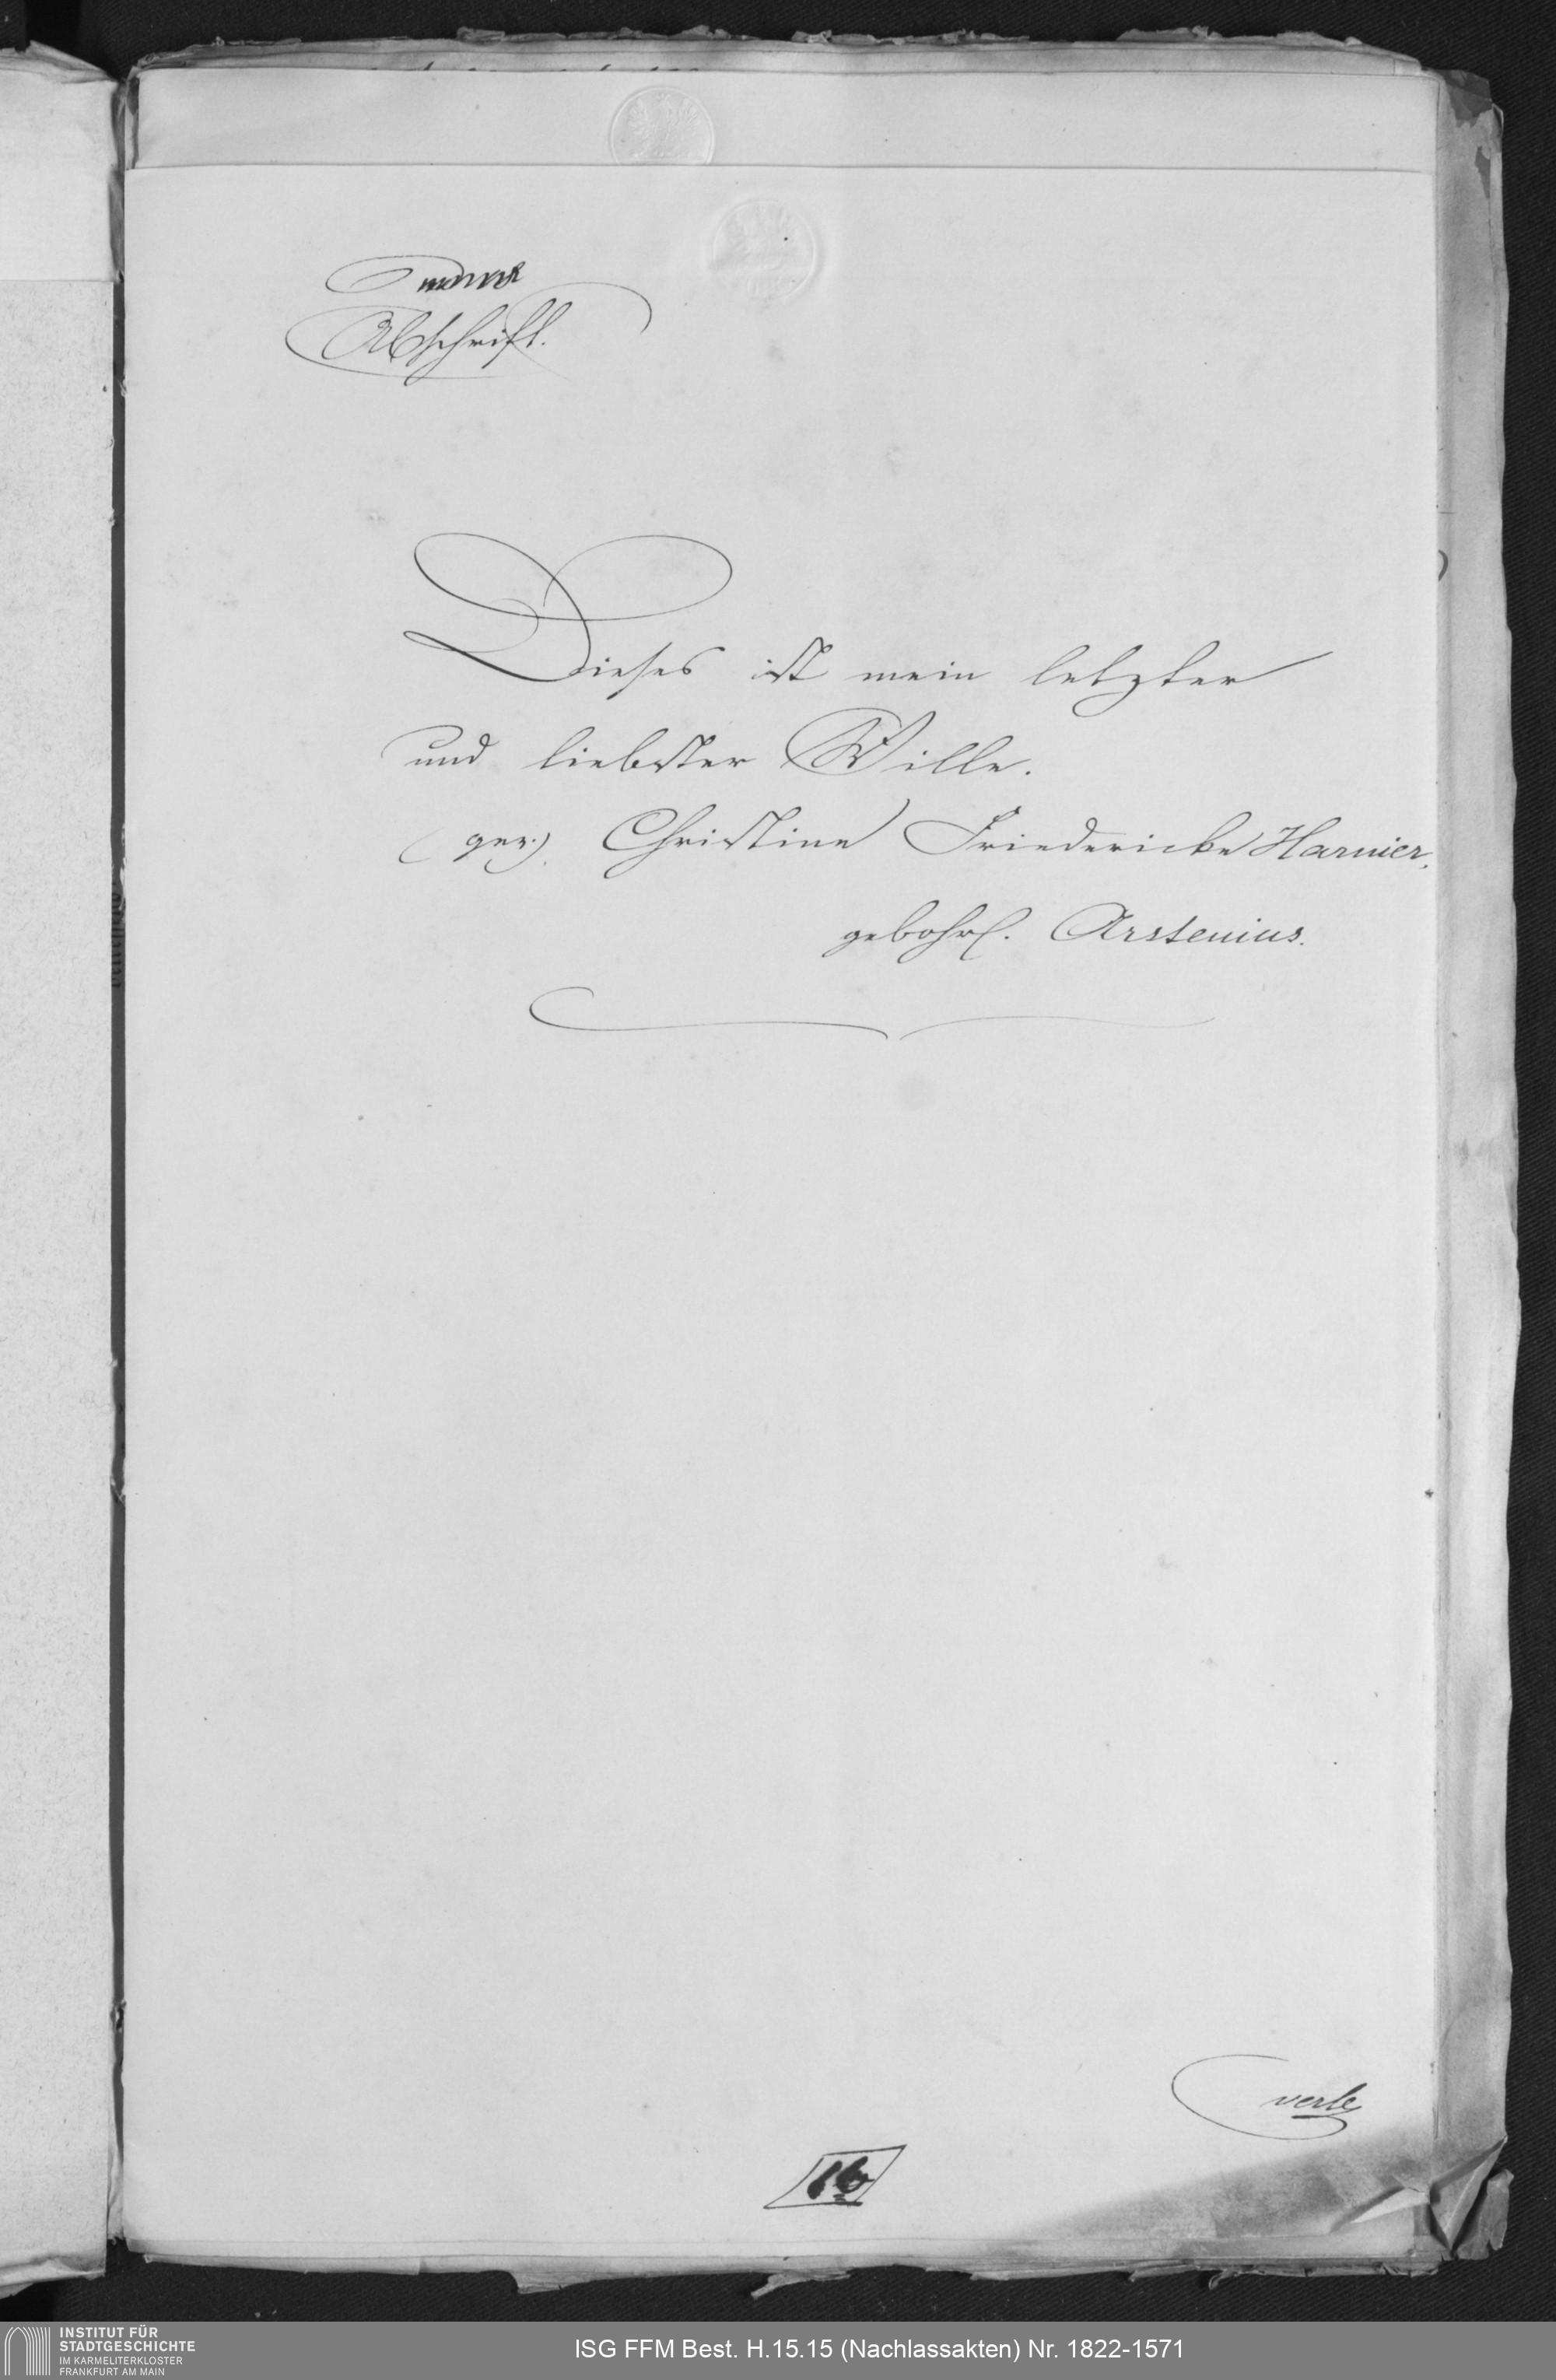 Abschrift.
Dieses ist mein letzter
und liebster Wille.
(gez:) Christine Friedericke Harnier,
gebohrl. Arstenius.
16
INSTITUT FÜR
STADTGESCHICHTE
IM KARMELITERKLOSTER
FRANKFURT AM MAIN
ISG FFM Best. H.15.15 (Nachlassakten) Nr. 1822-1571